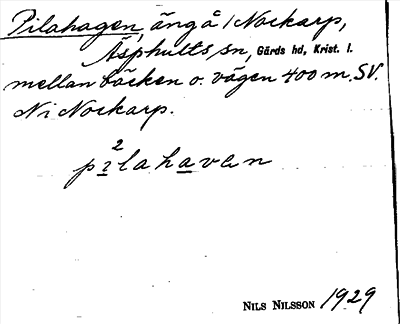 Pilahagen, äng å Nockarp,
Äsphults sn, Gärds hd, Krist. l.
mellan bäcken o. vägen 400 m. SV.
Ni Nockarp.
2
pılahavan
NILS NILSSON 1929